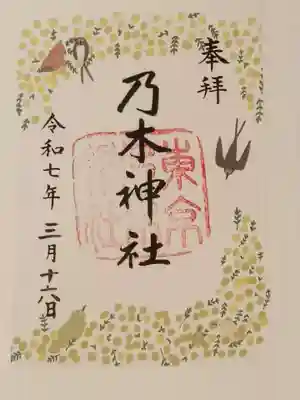 奉拝
乃木神社
東京
令和七年 三月十六日